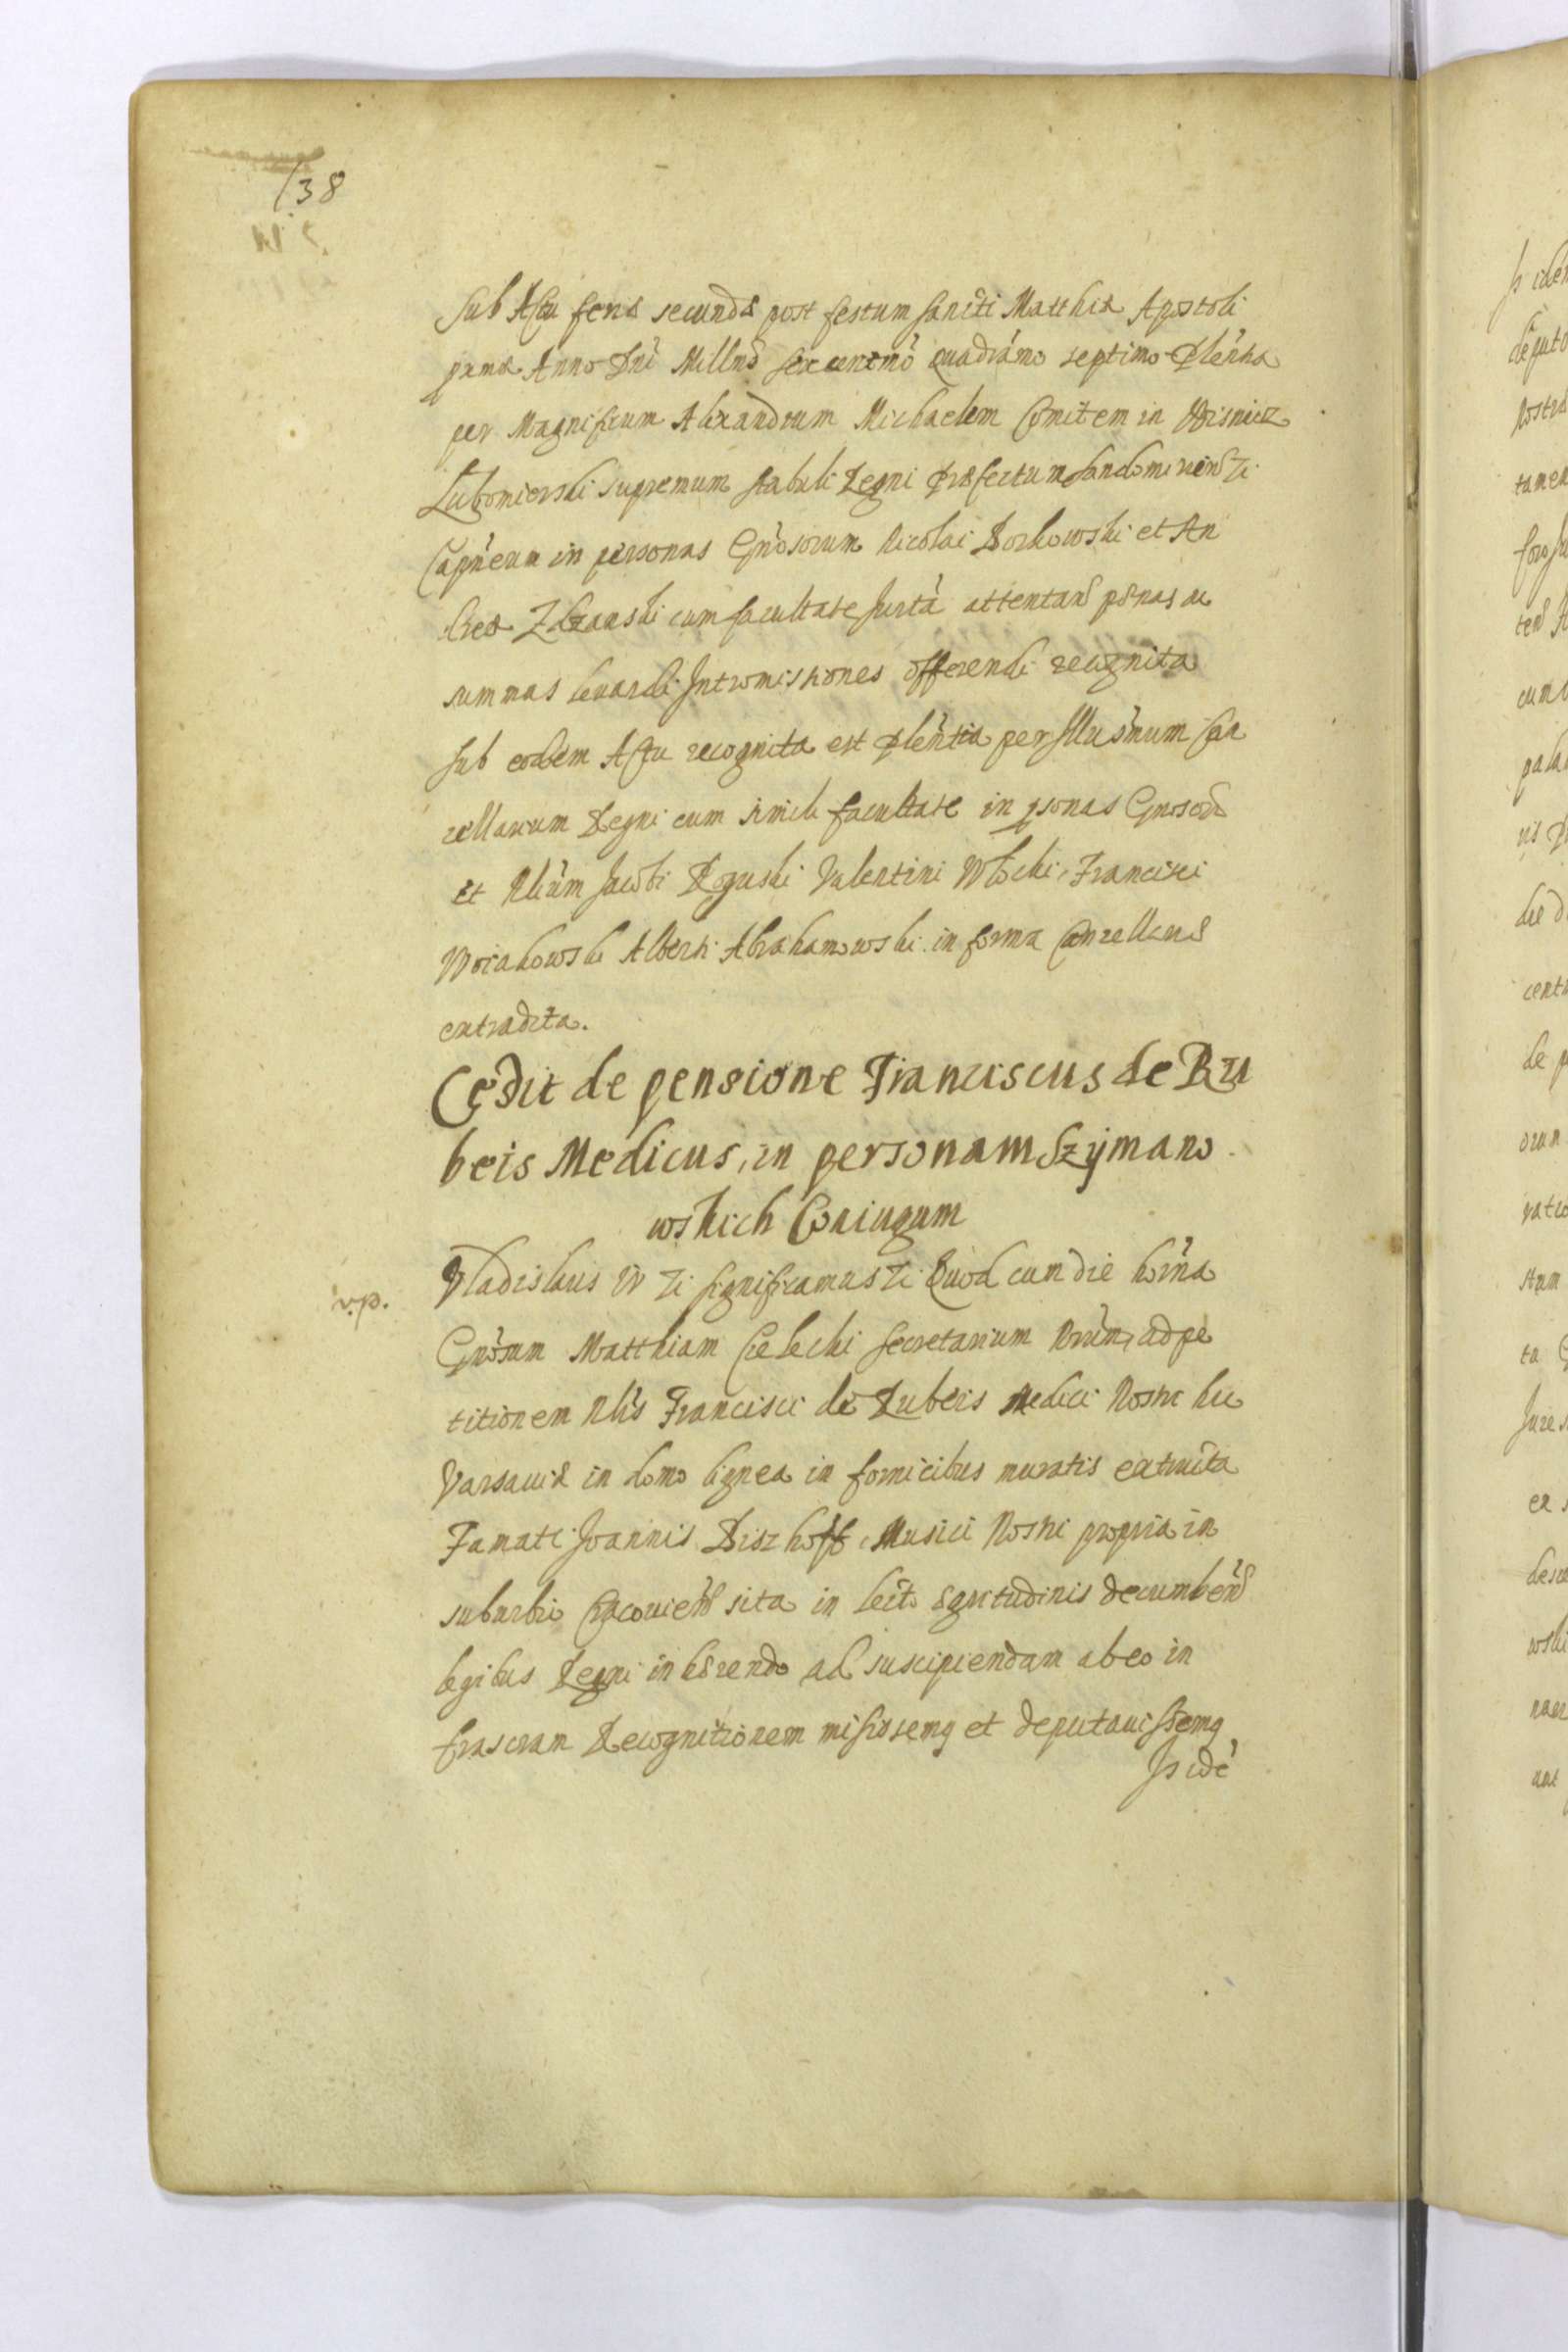 138
Sub Actu feriæ secundæ post festum Sancti Matthiæ Apostoli
primæ Anno Dni Millmo sexcentmo Quadrámo septimo Plenĩa
per Magnificum Alexandrum Michaelem Comitem in Wisnicz
Lubomierski supremum stabuli Regni Præfectum Sandomirien̄ Zc
Capneum in personas Gnosorum Nicolai Borkowski et An
dreæ Zdzanski cum facultate attentan̄ pœnas ac
summas levandi Intromissiones offerendi recognita
Sub eodem Actu recognita est Plenĩtia per Illusmum Can
cellarium Regni cum simili facultate in psonas Gnosor̄
et Nlium Jacobi Roguski Valentini Włocki, Francisci
Worakowski Alberti Abrahamowski in forma Cancellariæ
extradita.
Cedit de pensione Franciscus de Ru
beis Medicus, in personam Szÿmano
wskich Coniugum
v.p.
Vladislaus IV Zc Significamus Zc Quod cum die hőrna
Gnősum Matthiam Cielecki Secretarium Nrűm, ad pe
titionem Nlis Francisci de Rubeis Medici Nostri hic
Varsaviæ in domo lignea in fornicibus muratis extructa
Famati Joannis Biszhoff Musici Nostri propria in
suburbio Cracovien̄ sita in lecto ægritudinis decumben̄
legibus Regni inhærendo ad suscipiendam ab eo in
frascram Recognitionem misissemq et deputavissemq
Is idē